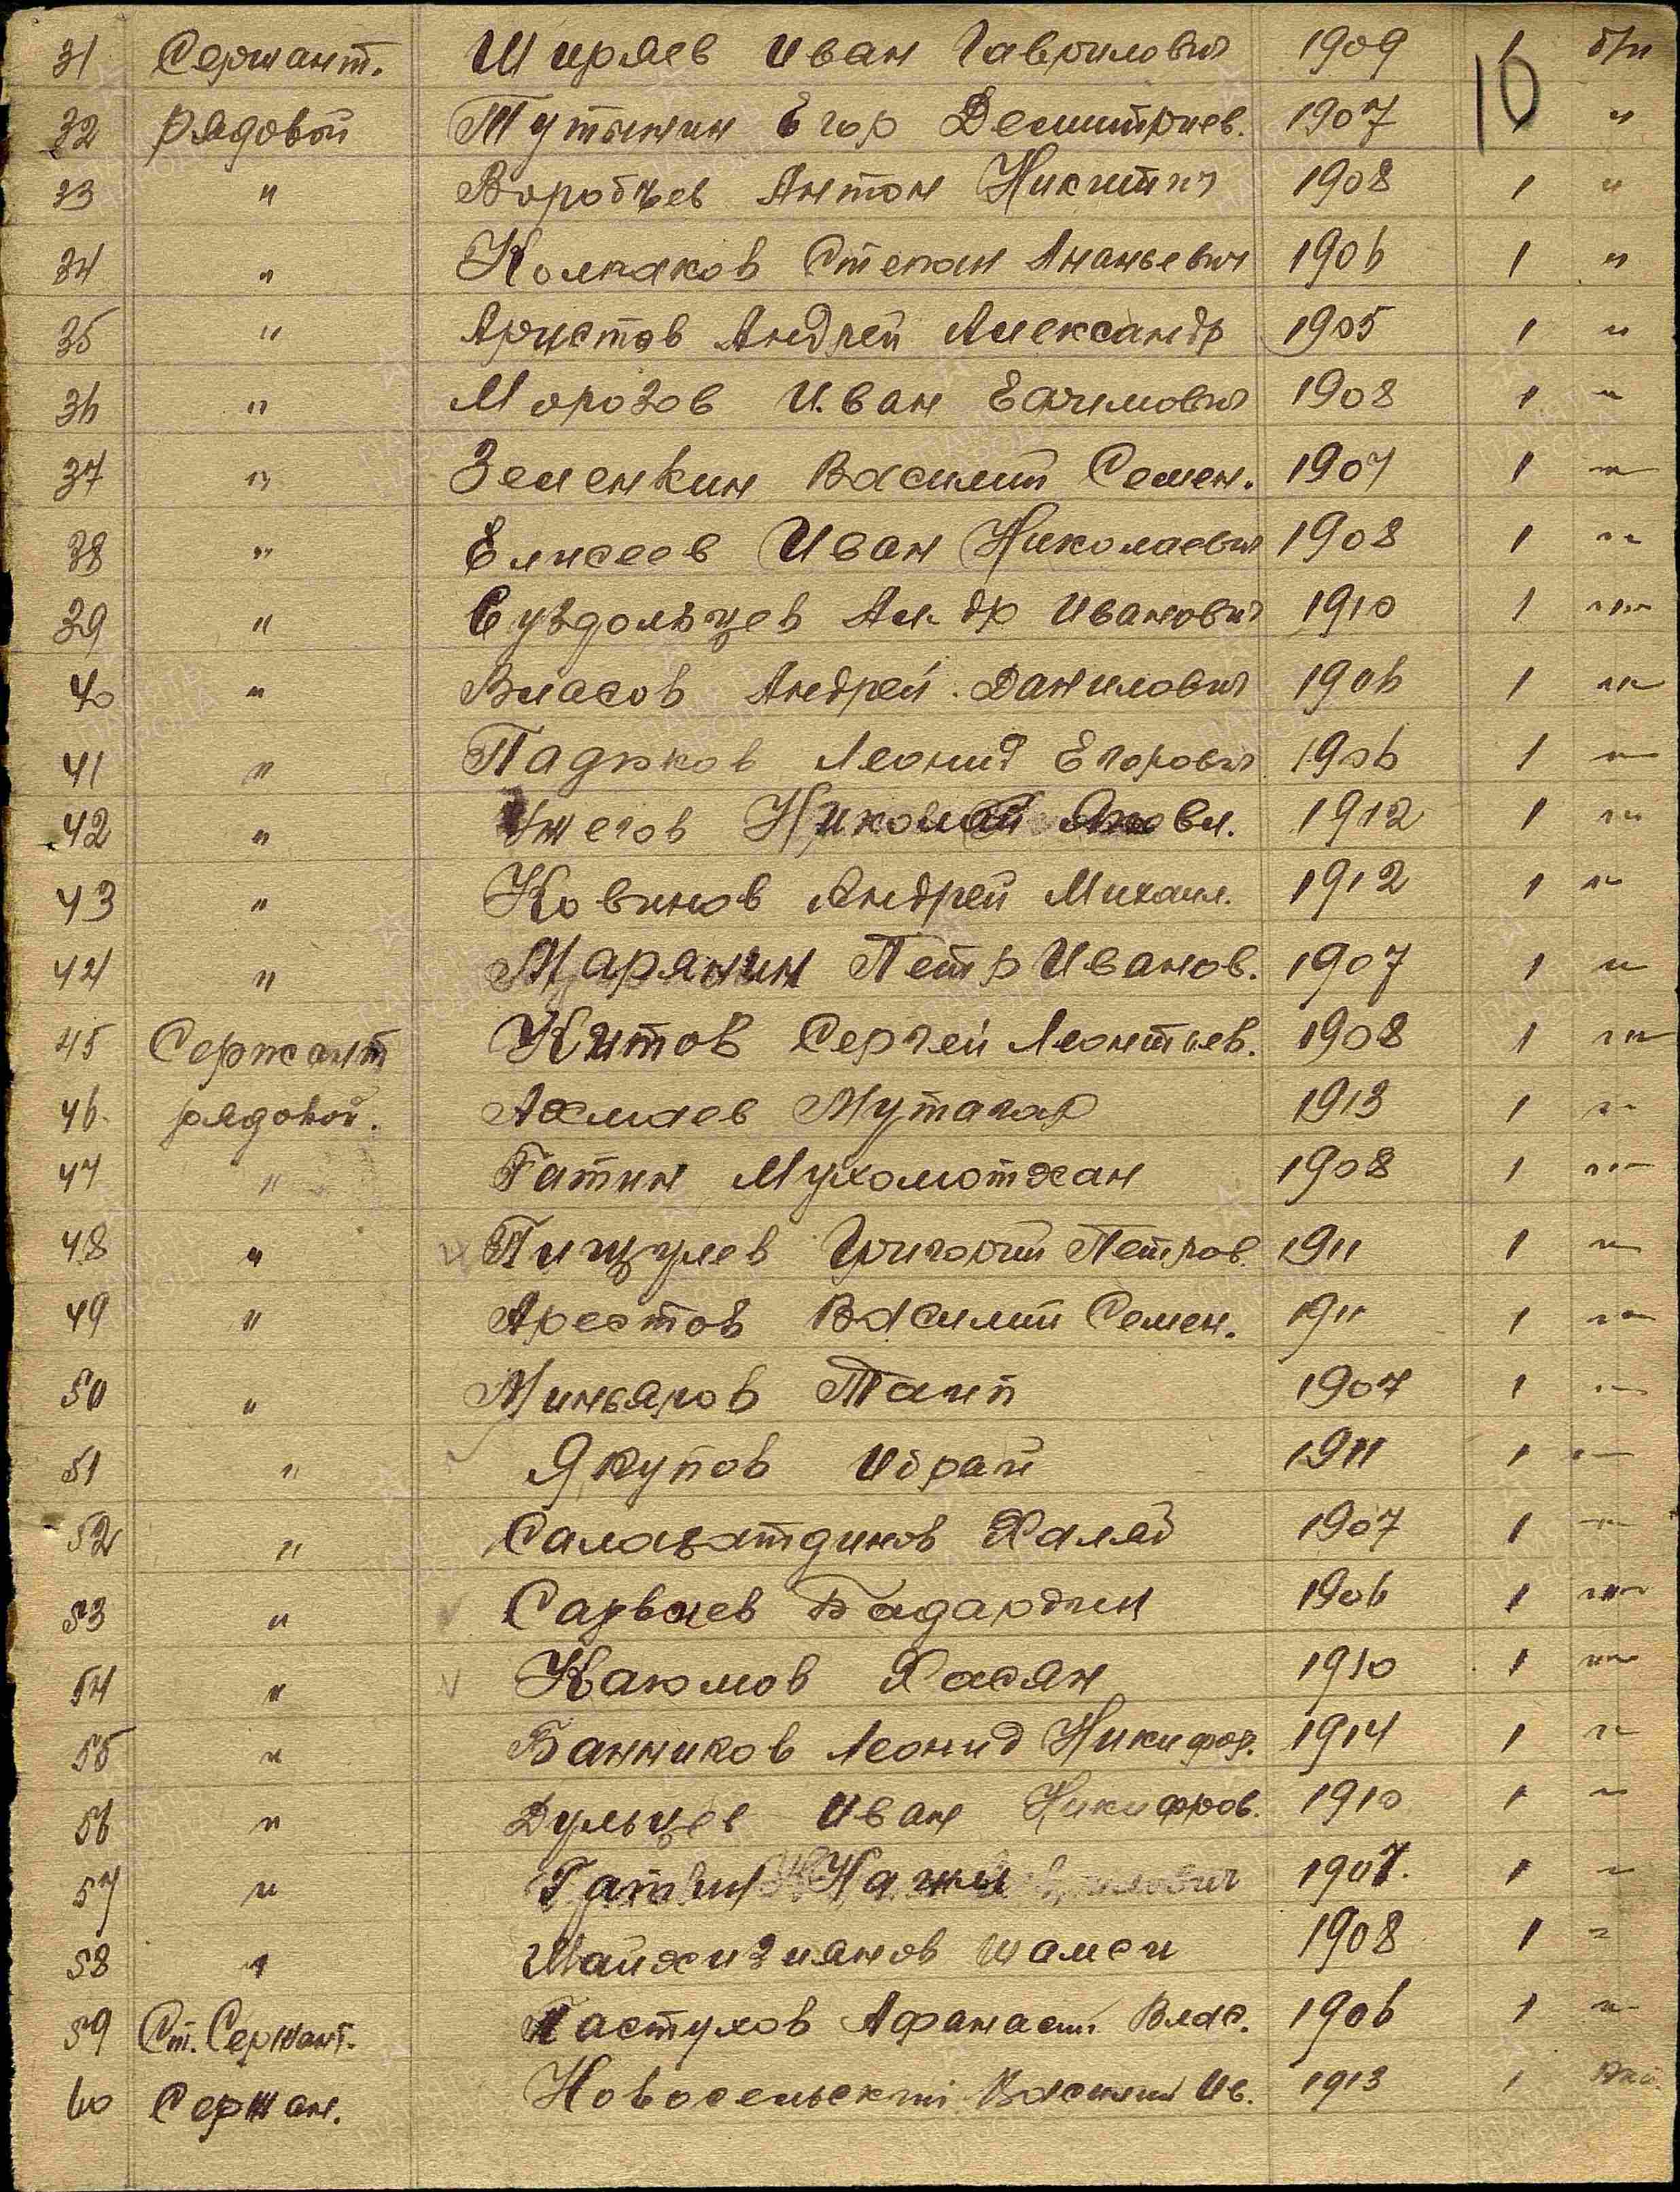 31 Сержант. Ширяев Иван Гаврилович 1909 1 б/п
10
32 Рядовой Тутынин Егор Демитриев. 1907 1 "
33 " Воробъев Антон Никитич 1908 1 "
34 " Колпаков Степан Ананьевич 1906 1 "
35 " Аристов Андрей Александр 1905 1 "
36 " Морозов Иван Ефимович 1908 1 "
37 " Земенкин Василий Семен. 1907 1 "
38 " Елисеев Иван Николаевич 1908 1 "
39 " Суздольцев Ал-др Иванович 1910 1 "
40 " Власов Андрей Данилович 1906 1 "
41 " Падюков Леонид Егорович 1906 1 "
42 " Ужегов Николай Яковл. 1912 1 "
43 " Ковинов Андрей Михаил. 1912 1 "
44 " Марянин Петр Иванов. 1907 1 "
45 Сержант Китов Сергей Леонтьев. 1908 1 "
46. рядовой. Ахмаев Мутагар 1913 1 "
47 " Гатин Мухомотхан 1908 1 "
48 " Пищулев Григорий Петров. 1911 1 "
49 " Арестов Василий Семен. 1911 1 "
50 " Миньяров Тагип 1907 1 "
51 " Якупов Ибрай 1911 1 "
52 " Салаватдинов Халяд 1907 1 "
53 " Сарваев Бадардин 1906 1 "
54 " Каюмов Хасян 1910 1 "
55 " Банников Леонид Никифор. 1914 1 "
56 " Дульцев Иван Никифров. 1910 1 "
57 " Гатин Нажи 1907. 1 "
58 " Шайхизианов Шамси 1908 1 "
59 Ст. Сержант. Пастухов Афанасий Влас. 1906 1 "
60 Сержан. Новосельский Василий Ив. 1913 1